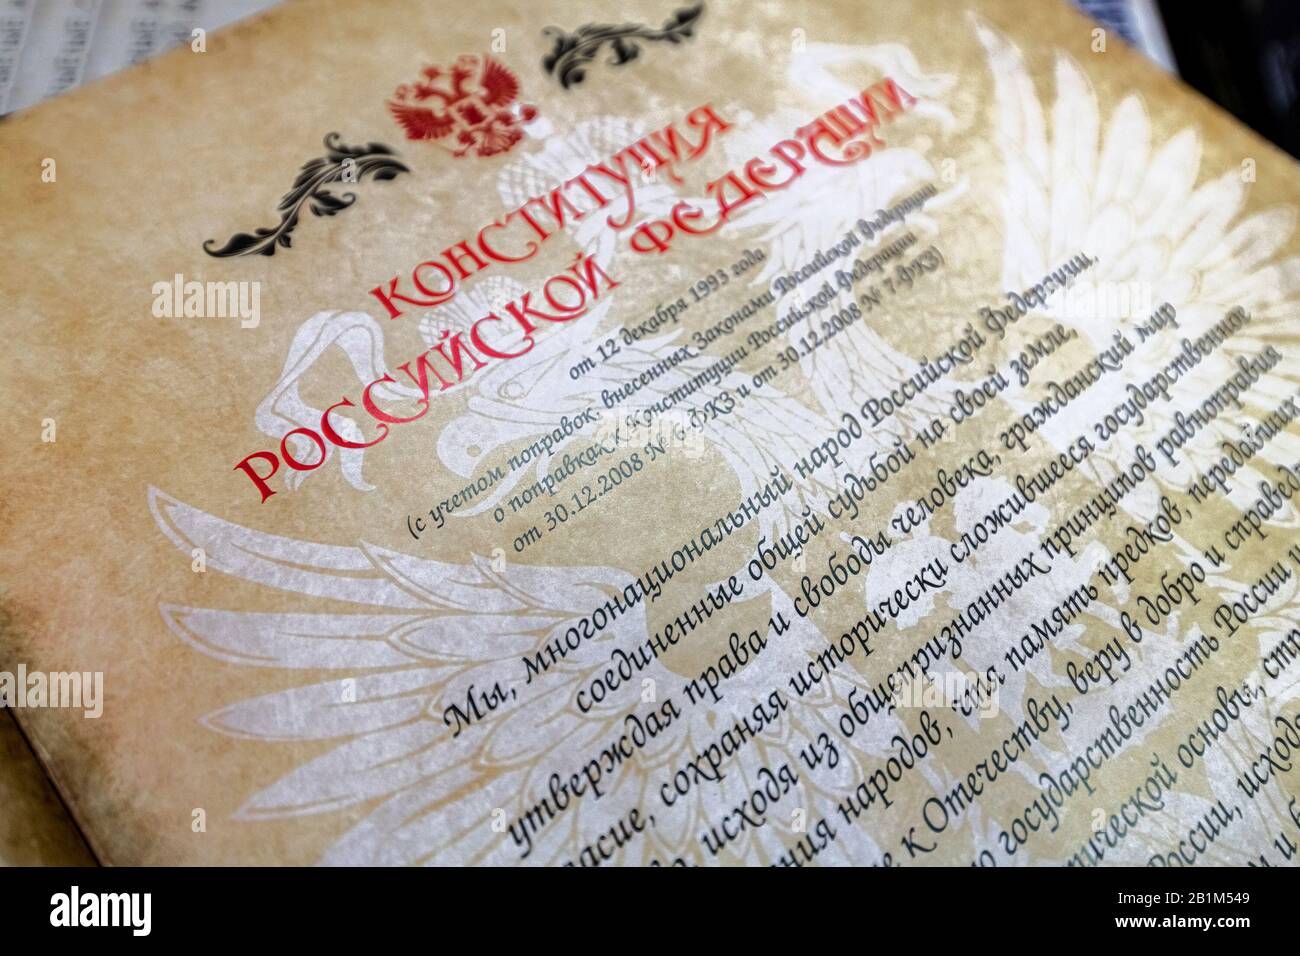 КОНСТИТУЦИЯ
РОССИЙСКОЙ ФЕДЕРАЦИИ
от 12 декабря 1993 года
(с учетом поправок, внесенных Законами Российской Федерации
о поправках к Конституции Российской Федерации
от 30.12.2008 № 6-ФКЗ и от 30.12.2008 № 7-ФКЗ)
Мы, многонациональный народ Российской Федерации,
соединенные общей судьбой на своей земле,
утверждая права и свободы человека, гражданский мир
асие, сохраняя исторически сложившееся государственное
исходя из общепризнанных принципов равноправия
ния народов, чтя память предков, передавших
е к Отечеству, веру в добро и справед
ю государственность России и
тической основы, стр
России, исходя
м и
alamy
Image ID: 2B1M549
www.alamy.com